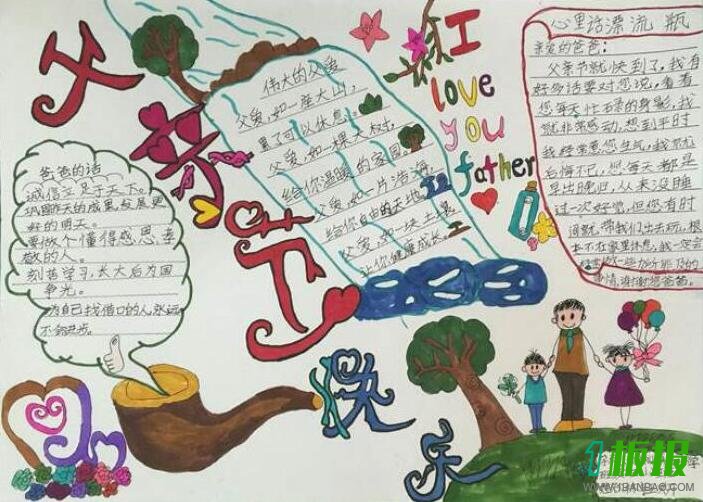 父亲节快乐
I
love
you
father
心里话漂流瓶
亲爱的爸爸：
父亲节就快到了，我有
好多话要对您说，看看
您每天忙碌的身影，我
就非常感动，想到平时
我经常惹您生气，我就
后悔不已，您每天都是
早出晚归，从来没睡
过一次好觉，但您有时
间就带我们出去玩，根
本不在家里休息，我一定会
情，谢谢您爸爸。
伟大的父爱
父爱，如一座大山，
累了可以休息。
父爱，如一棵大树，
给你温暖的家园。
父爱，如一片浩海，
给你自由的天地。
父爱，如一块土壤，
让你健康成长。
爸爸的话
诚信立足于天下。
巩固昨天的成果，发展更
好的明天。
要做个懂得感恩、孝
敬的人。
刻苦学习，长大后为国
争光。
为自己找借口的人永远
不会进步。
1板报
WWW.1BANBAO.COM